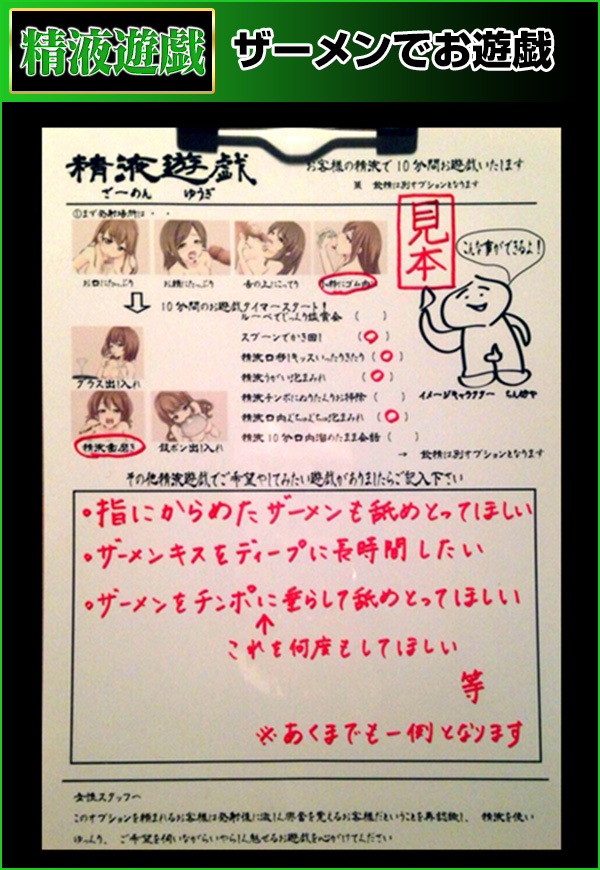 精液遊戯 ザーメンでお遊戯
精液遊戯
ざーめん ゆうぎ
お客様の精液で10分間お遊戯いたします
※ 飲精は別オプションとなります
①まず発射場所は・・
見本
こんな事ができるよ!
お口にたっぷり
お顔にたっぷり
舌の上にこってり
10分間のお遊戯タイマースタート!
ルーペでじっくり鑑賞会 ( )
スプーンでかき回し (○)
精液口移しキッスいったりきたり (○)
精液うがい泡まみれ (○)
グラス出し入れ
精液チンポにぬりたくりお掃除 ( )
イメージキャラクター
精液口内くちゅくちゅ泡まみれ (○)
精液10分口内溜のたまま会話 ( )
精液歯磨き
→ 飲精は別オプションとなります
その他精液遊戯でご希望やしてみたい遊戯がありましたらご記入下さい
・指にからめたザーメンも舐めとってほしい
・ザーメンキスをディープに長時間したい
・ザーメンをチンポに垂らして舐めとってほしい
↑
これを何度もしてほしい
等
※あくまでも一例となります
女性スタッフへ
このオプションを頼まれるお客様は発射後に激しく興奮を覚えるお客様だということを再認識し、精液を使い
ゆっくり、ご希望を伺いながらいやらしく魅せるお遊戯を心がけてください